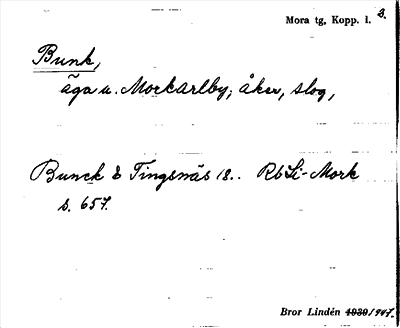 Mora tg, Kopp. l. 3.
Bunk,
äga u. Morkarlby; åker, slog,
Bunck & Tingsnäs 18.. RbSi-Mork
s. 657.
Bror Lindén 1939/947.